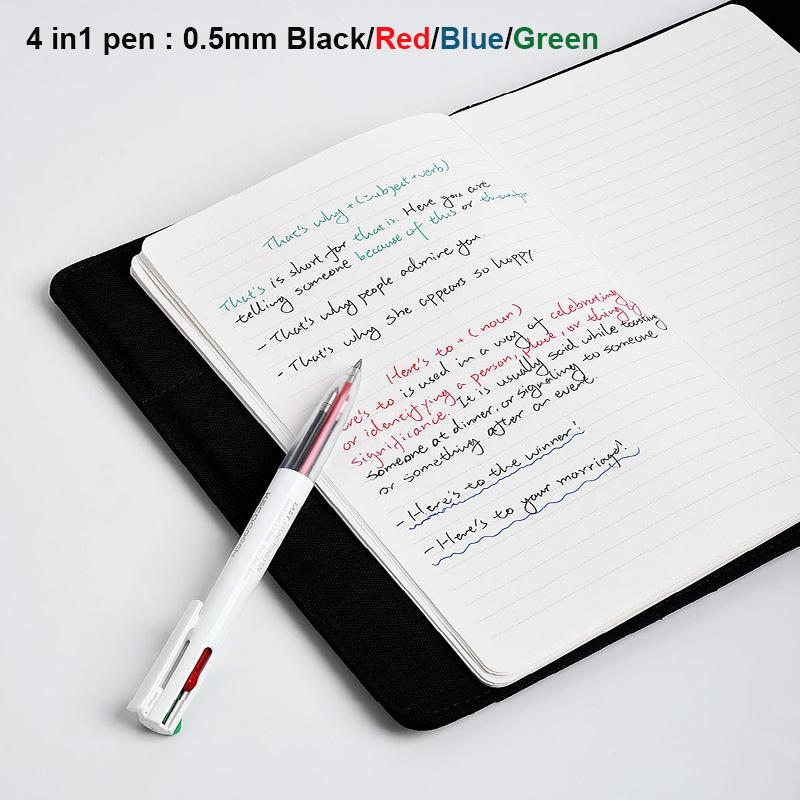 4 in1 pen : 0.5mm Black/Red/Blue/Green
That's why + (subject + verb)
That's is short for that is. Here you are
telling someone because of this or
- That's why people admire you.
- That's why she appears so happy.
Here's to + (noun)
is used in a way of celebrating
or identifying a person, place, or thing's
significance. It is usually said while toasting
someone at dinner, or signaling to someone
or something after an event.
- Here's to the winner!
- Here's to your marriage!